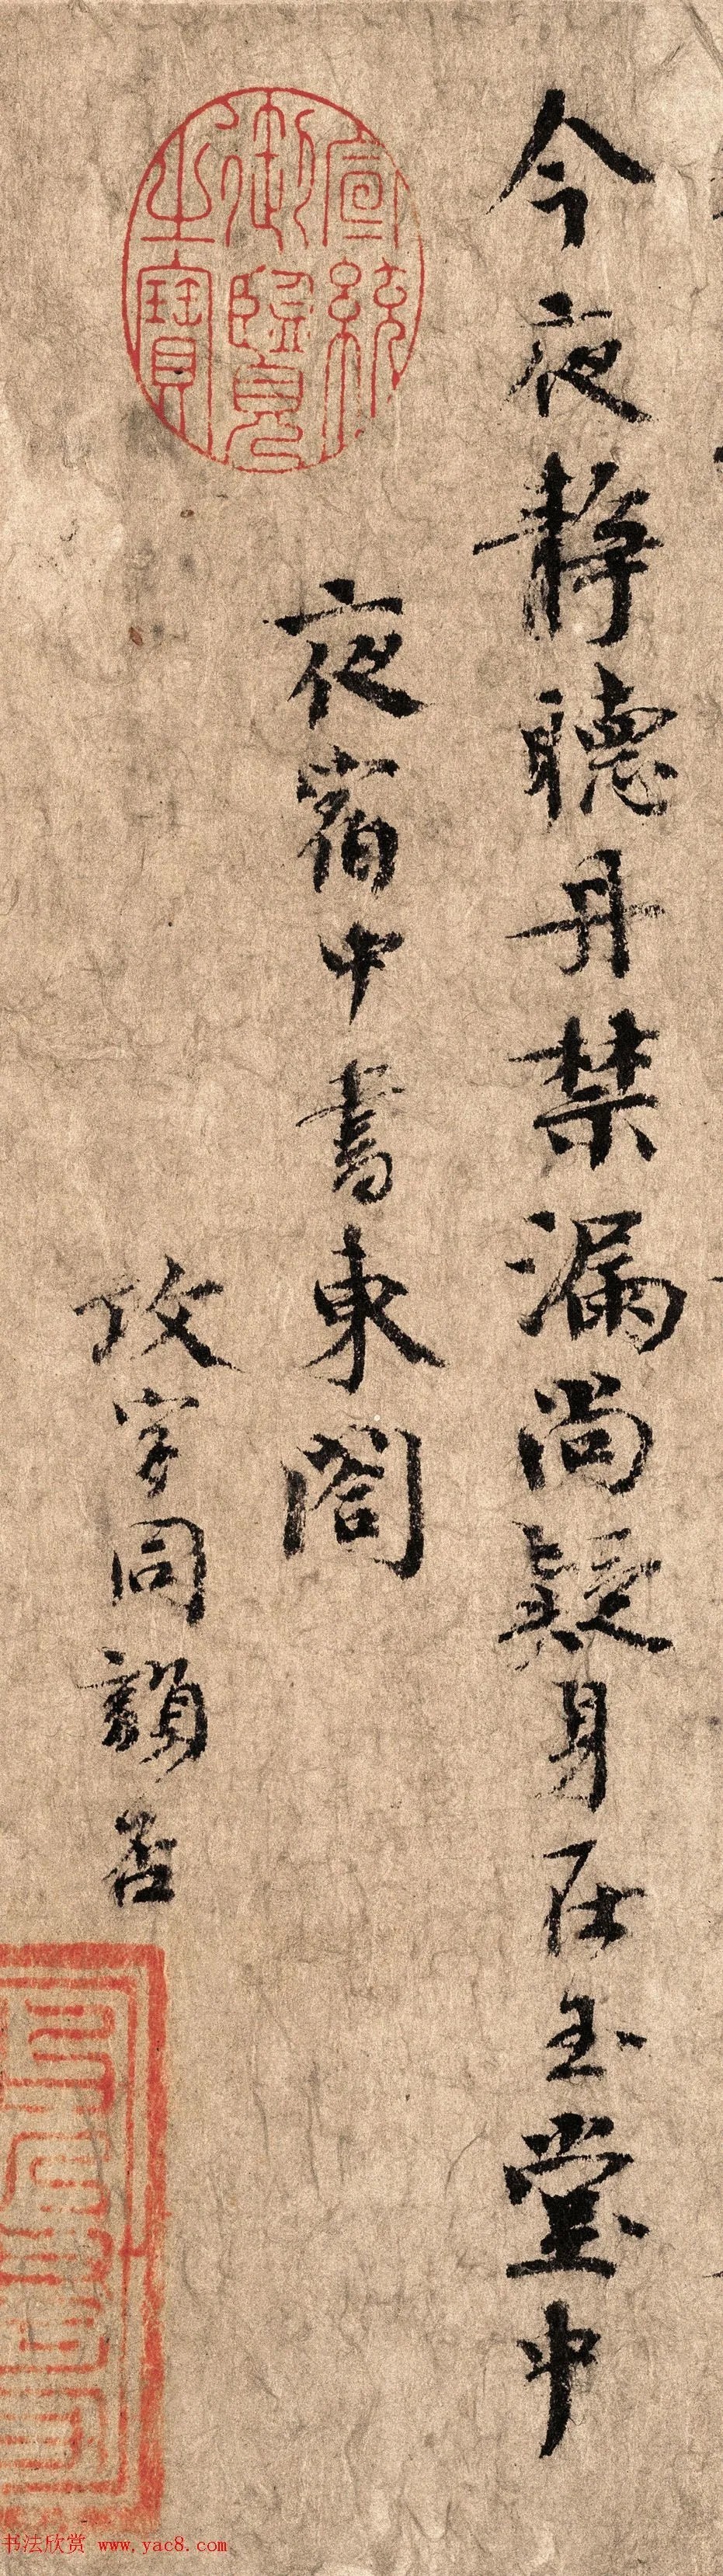 今夜静聽丹禁漏尚疑身在玉堂中
夜宿中書東閤
攻字同韻否
宣統
御覽
之寶
书法欣赏 www.yac8.com